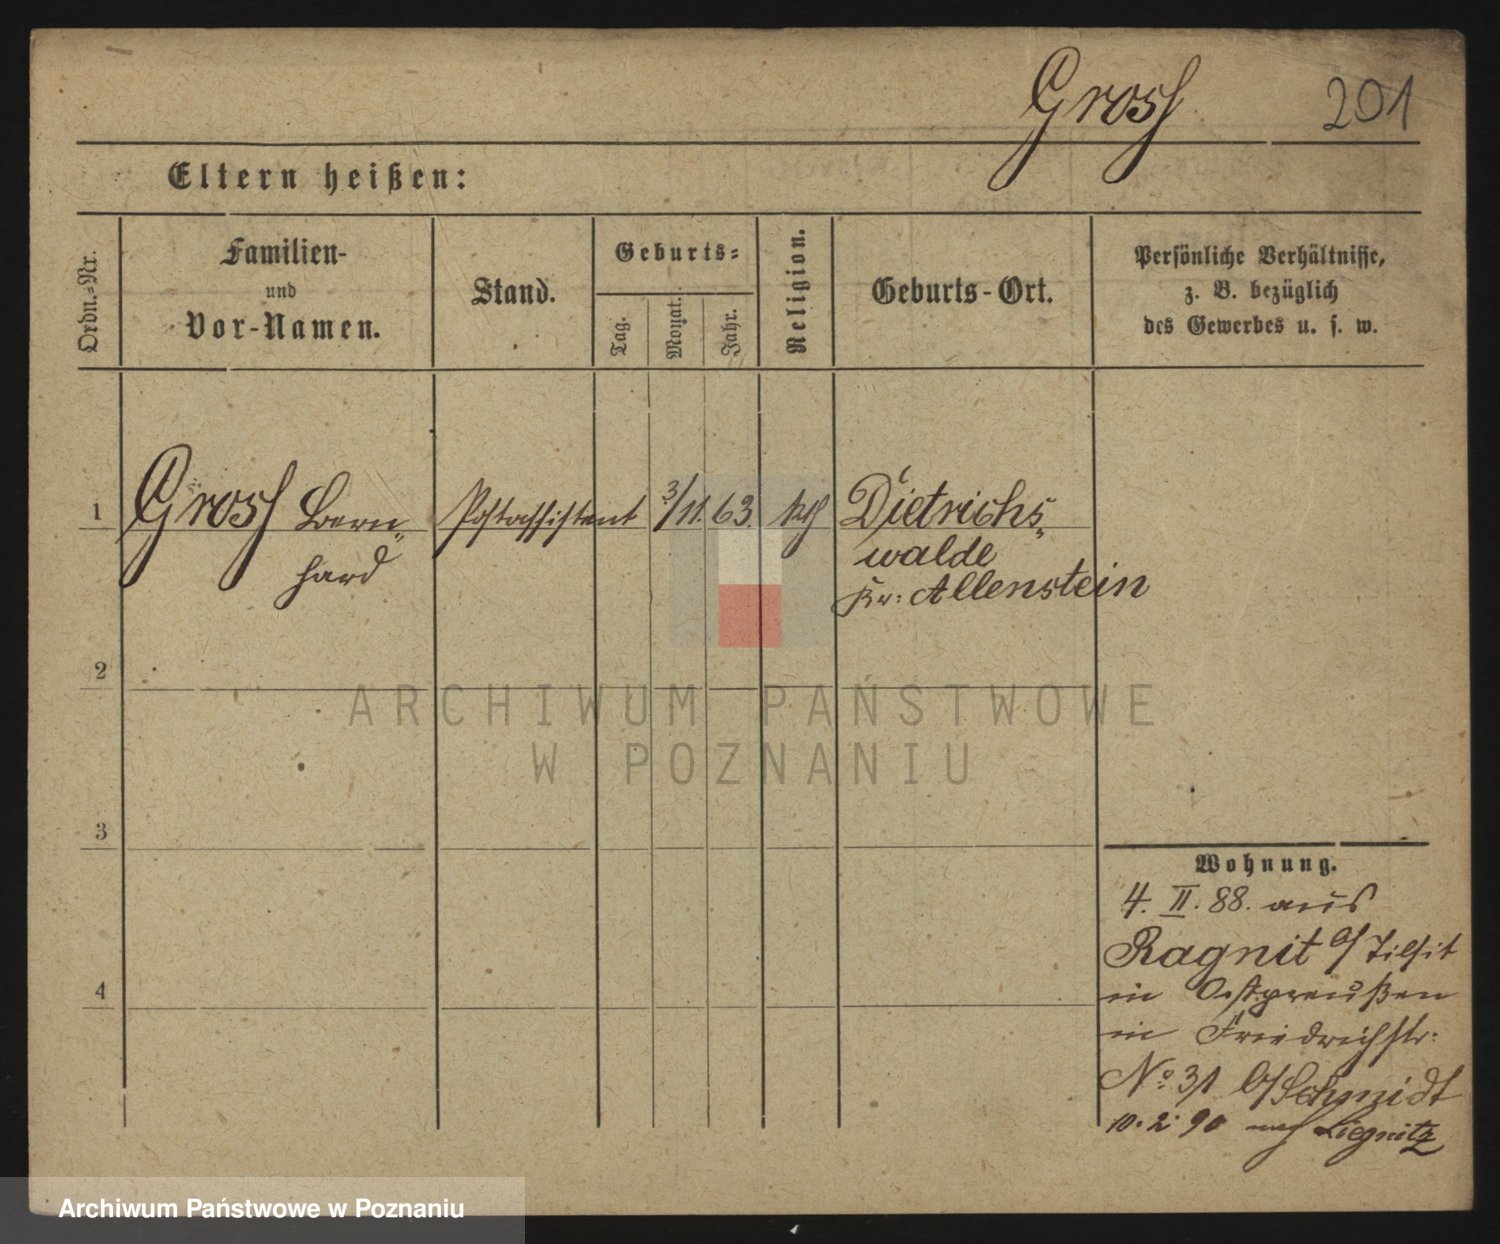 Grosſ 201
Eltern heißen:
Ordn.-Nr.
Familien-
und
Vor-Namen.
Stand.
Geburts-
Tag.
Monat.
Jahr.
Religion.
Geburts-Ort.
Persönliche Verhältnisse,
z. B. bezüglich
des Gewerbes u. s. w.
1 Grosſ Bern„ Postassistent 3/11. 63. kth Dietrichs„
hard walde
Kr: Allenstein
2
ARCHIWUM PAŃSTWOWE
W POZNANIU
3
Wohnung.
4. II. 88. aus
Ragnit a/Tilsit
4
in Ostpreußen
in Friedrichstr:
No. 31 b/Schmidt
10. 2. 90 nach Liegnitz
Archiwum Państwowe w Poznaniu